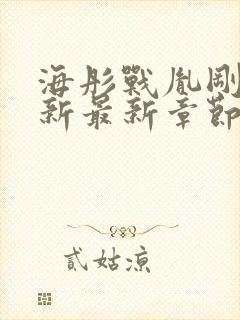 海彤戰胤剛
新最新章節
貳姑凉